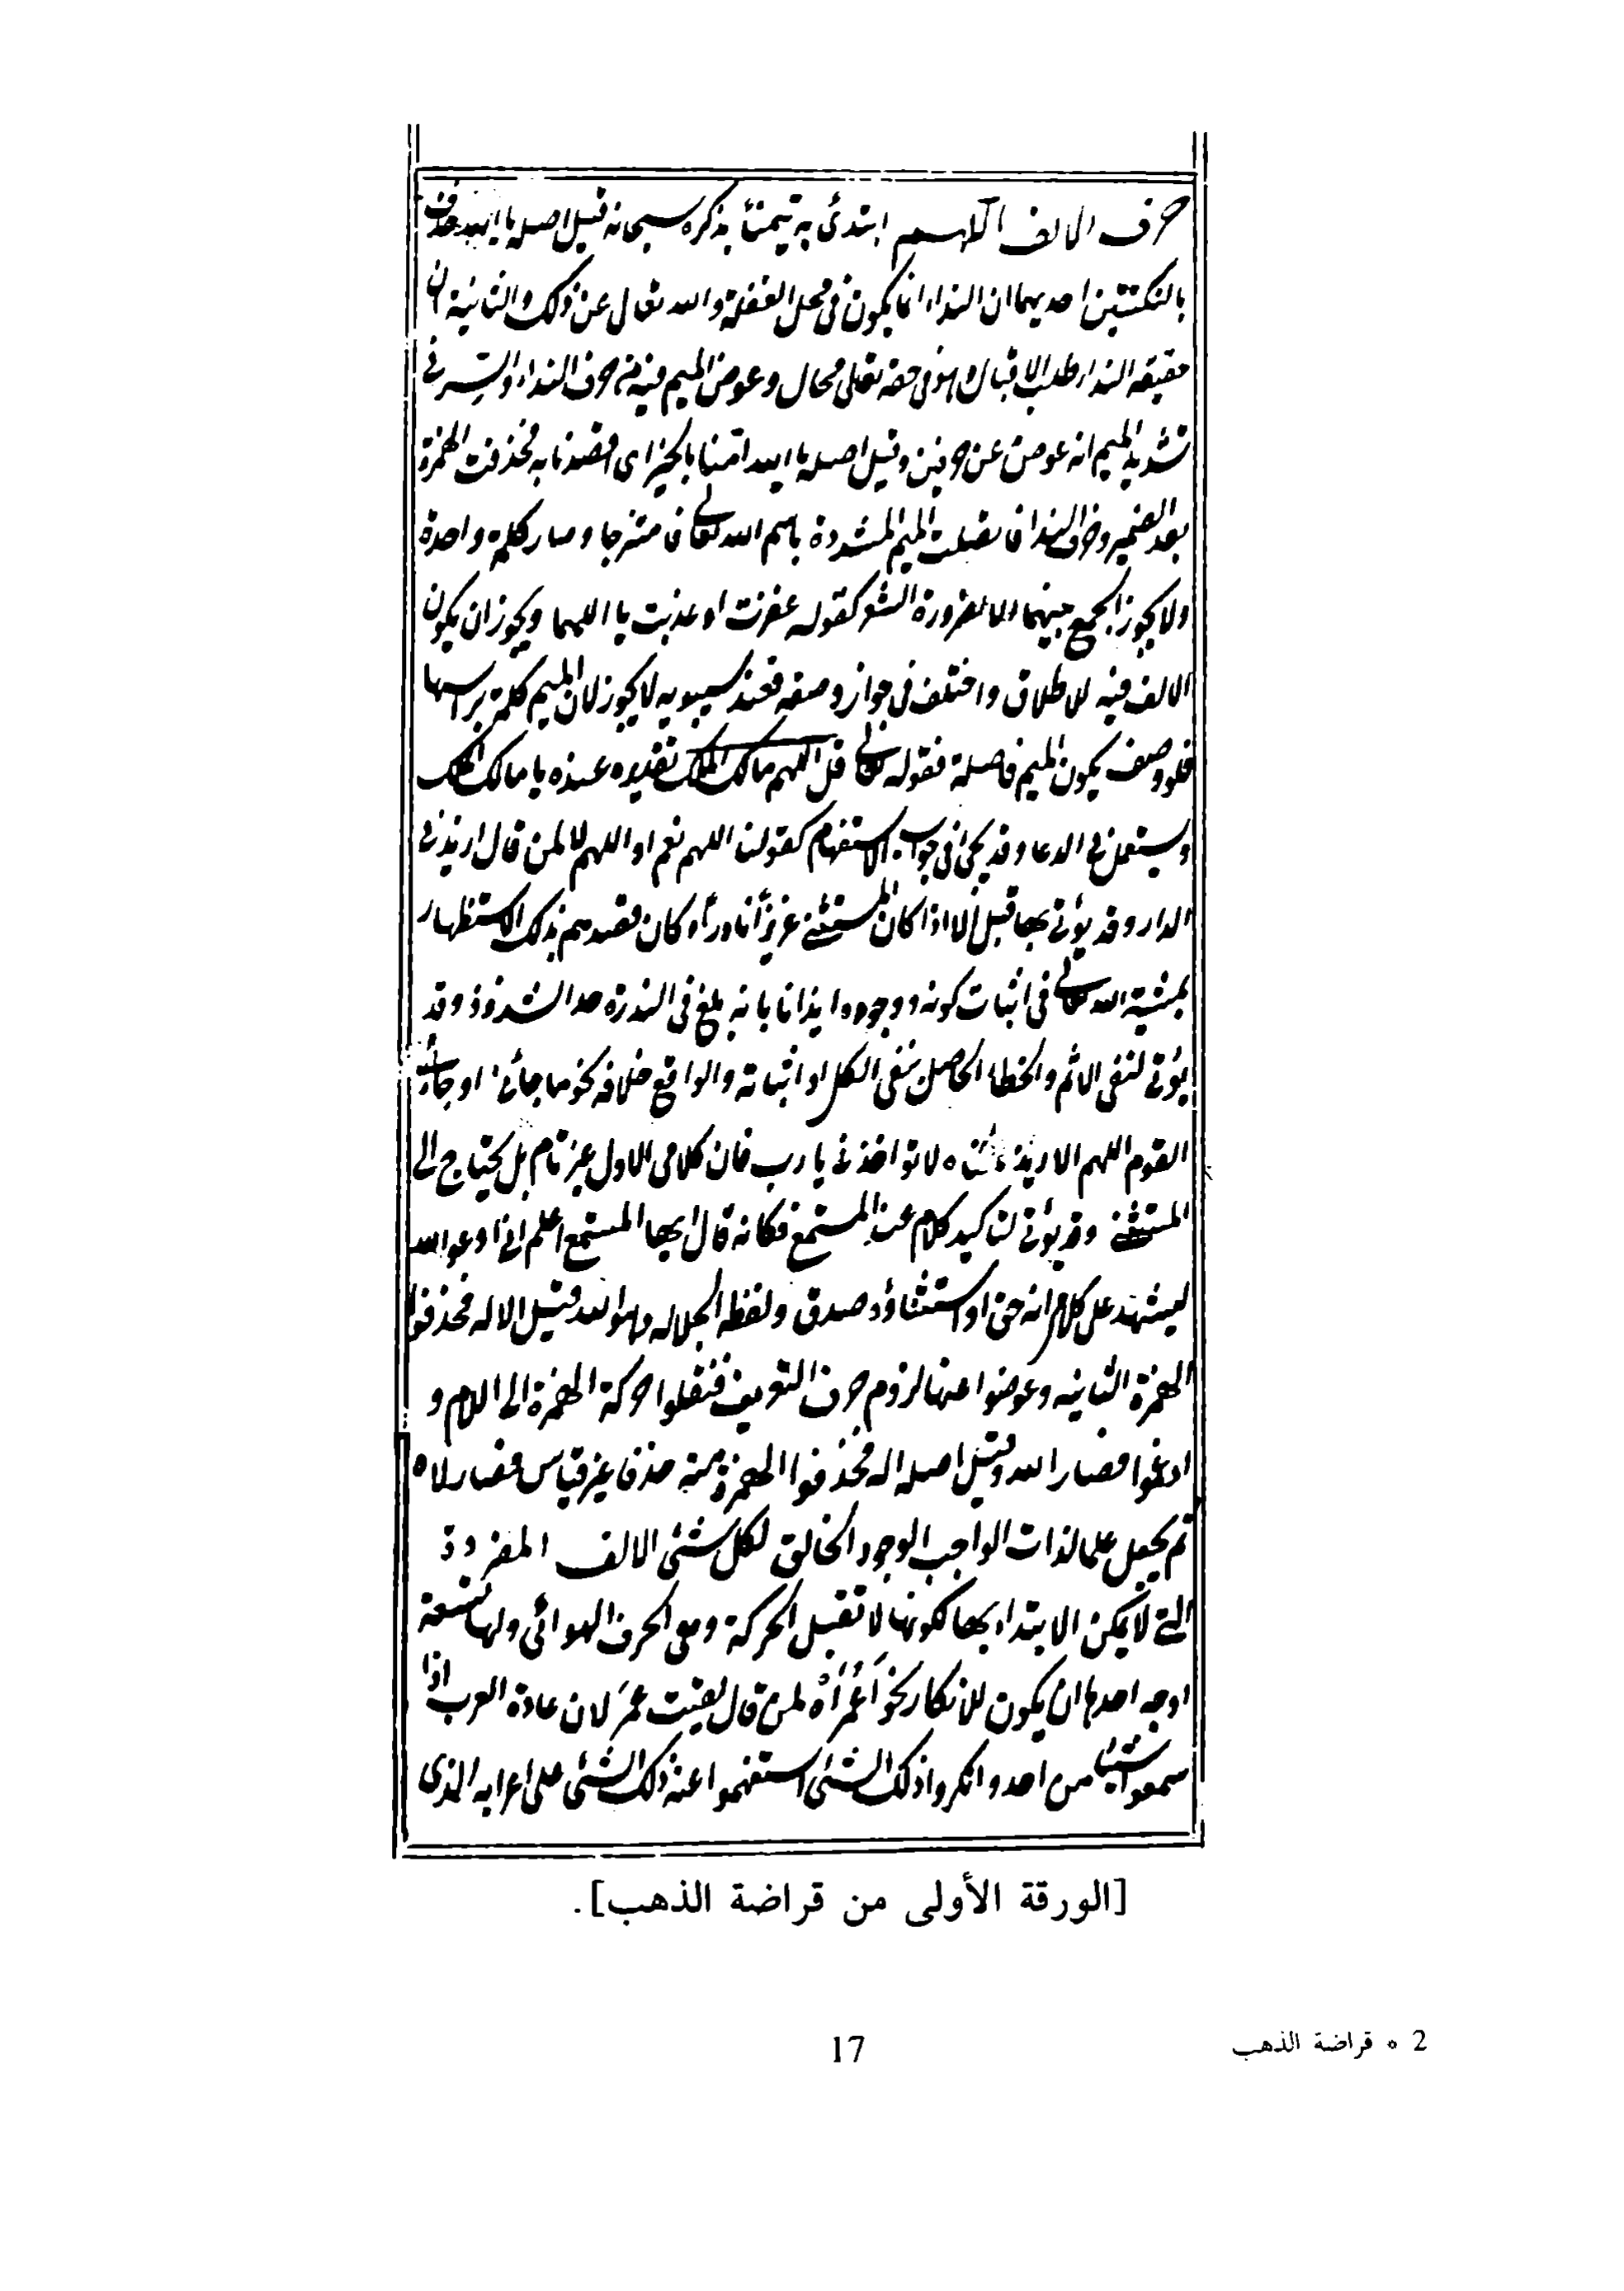 حرف الالف اللهم ابتدئ به تيمنا بذكره سبحانه قيل اصله يا الله حذف
بالنكتتين احديهما ان النداء انما يكون في محل الغفلة والله تعالى عن ذلك والثانية ان
حقيقة النداء طلب الاقبال وهو في حقه تعالى محال وعوض الميم فيه من حرف النداء والسر في
تشديد الميم انه عوض عن حرفين وقيل اصله يا الله امنا بالخير اى اقصدنا به فحذفت الهمزة
بعد الضمير وحرف الندا فاتصلت الميم المشددة باسم الله تعالى فامتزجا وصار كلمة واحدة
ولا يجوز الجمع بينهما الا لضرورة الشعر كقوله غفرت او عذبت يا اللهما ويجوز ان يكون
الالف فيه للاطلاق واختلف في جواز وصفه فعند سيبويه لا يجوز لان الميم كلمة براسها
فلو وصف يكون الميم فاصلة فقوله تعالى قل اللهم مالك الملك تقديره عنده يا مالك الملك
ويستعمل في الدعا وقد يجئ في جواب الاستفهام كقولنا اللهم نعم او اللهم لا لمن قال ازيد في
الدار وقد يؤتى بها قبل الا اذا كان المستثنى عزيزاً نادراً وكان قصدهم بذلك الاستظهار
بمشية الله تعالى في اثبات كونه ووجوده ايذانا بانه بلغ في الندرة حد الشذوذ وقد
يؤتى لنفى الاثم والخطاء الحاصل بنفى الكل او اثباته والواقع خلافه نحو ما جائنى او جائنى
القوم اللهم الا زيد لا تواخذنى يا رب فان كلامى الاول غير تام بل يحتاج الى
المستثنى وقد يؤتى لتاكيد كلام عند المستمع فكانه قال ايها المستمع اعلم انى ادعو الله
ليشهد على كلام انه حق او استثناؤه صدق ولفظه الجلاله وهو الله قيل الاله فحذفوا
الهمزة الثانيه وعوضوا عنها لزوم حرف التعريف فنقلوا حركة الهمزة الى اللام و
ادغموا فصار الله وقيل اصله اله فحذفوا الهمزة منه حذفا غير قياس فصار لاه
ثم يجعل علما لذات الواجب الوجود الخالق لكل شئ الالف المفردة
التى لا يمكن الابتداء بها لكونها لا تقبل الحركة وهى الحرف الهوائى ولها تسعة
اوجه احدها ان يكون للانكار نحو أعُمَراُه لمن قال لقيت عمرَ لان عادة العرب اذا
سمعوا شيئا من احد وانكروا ذلك الشئ استفهموا عنه ذلك الشئ على اعرابه الذى
[الورقة الأولى من قراضة الذهب].
2 * قراضة الذهب
17